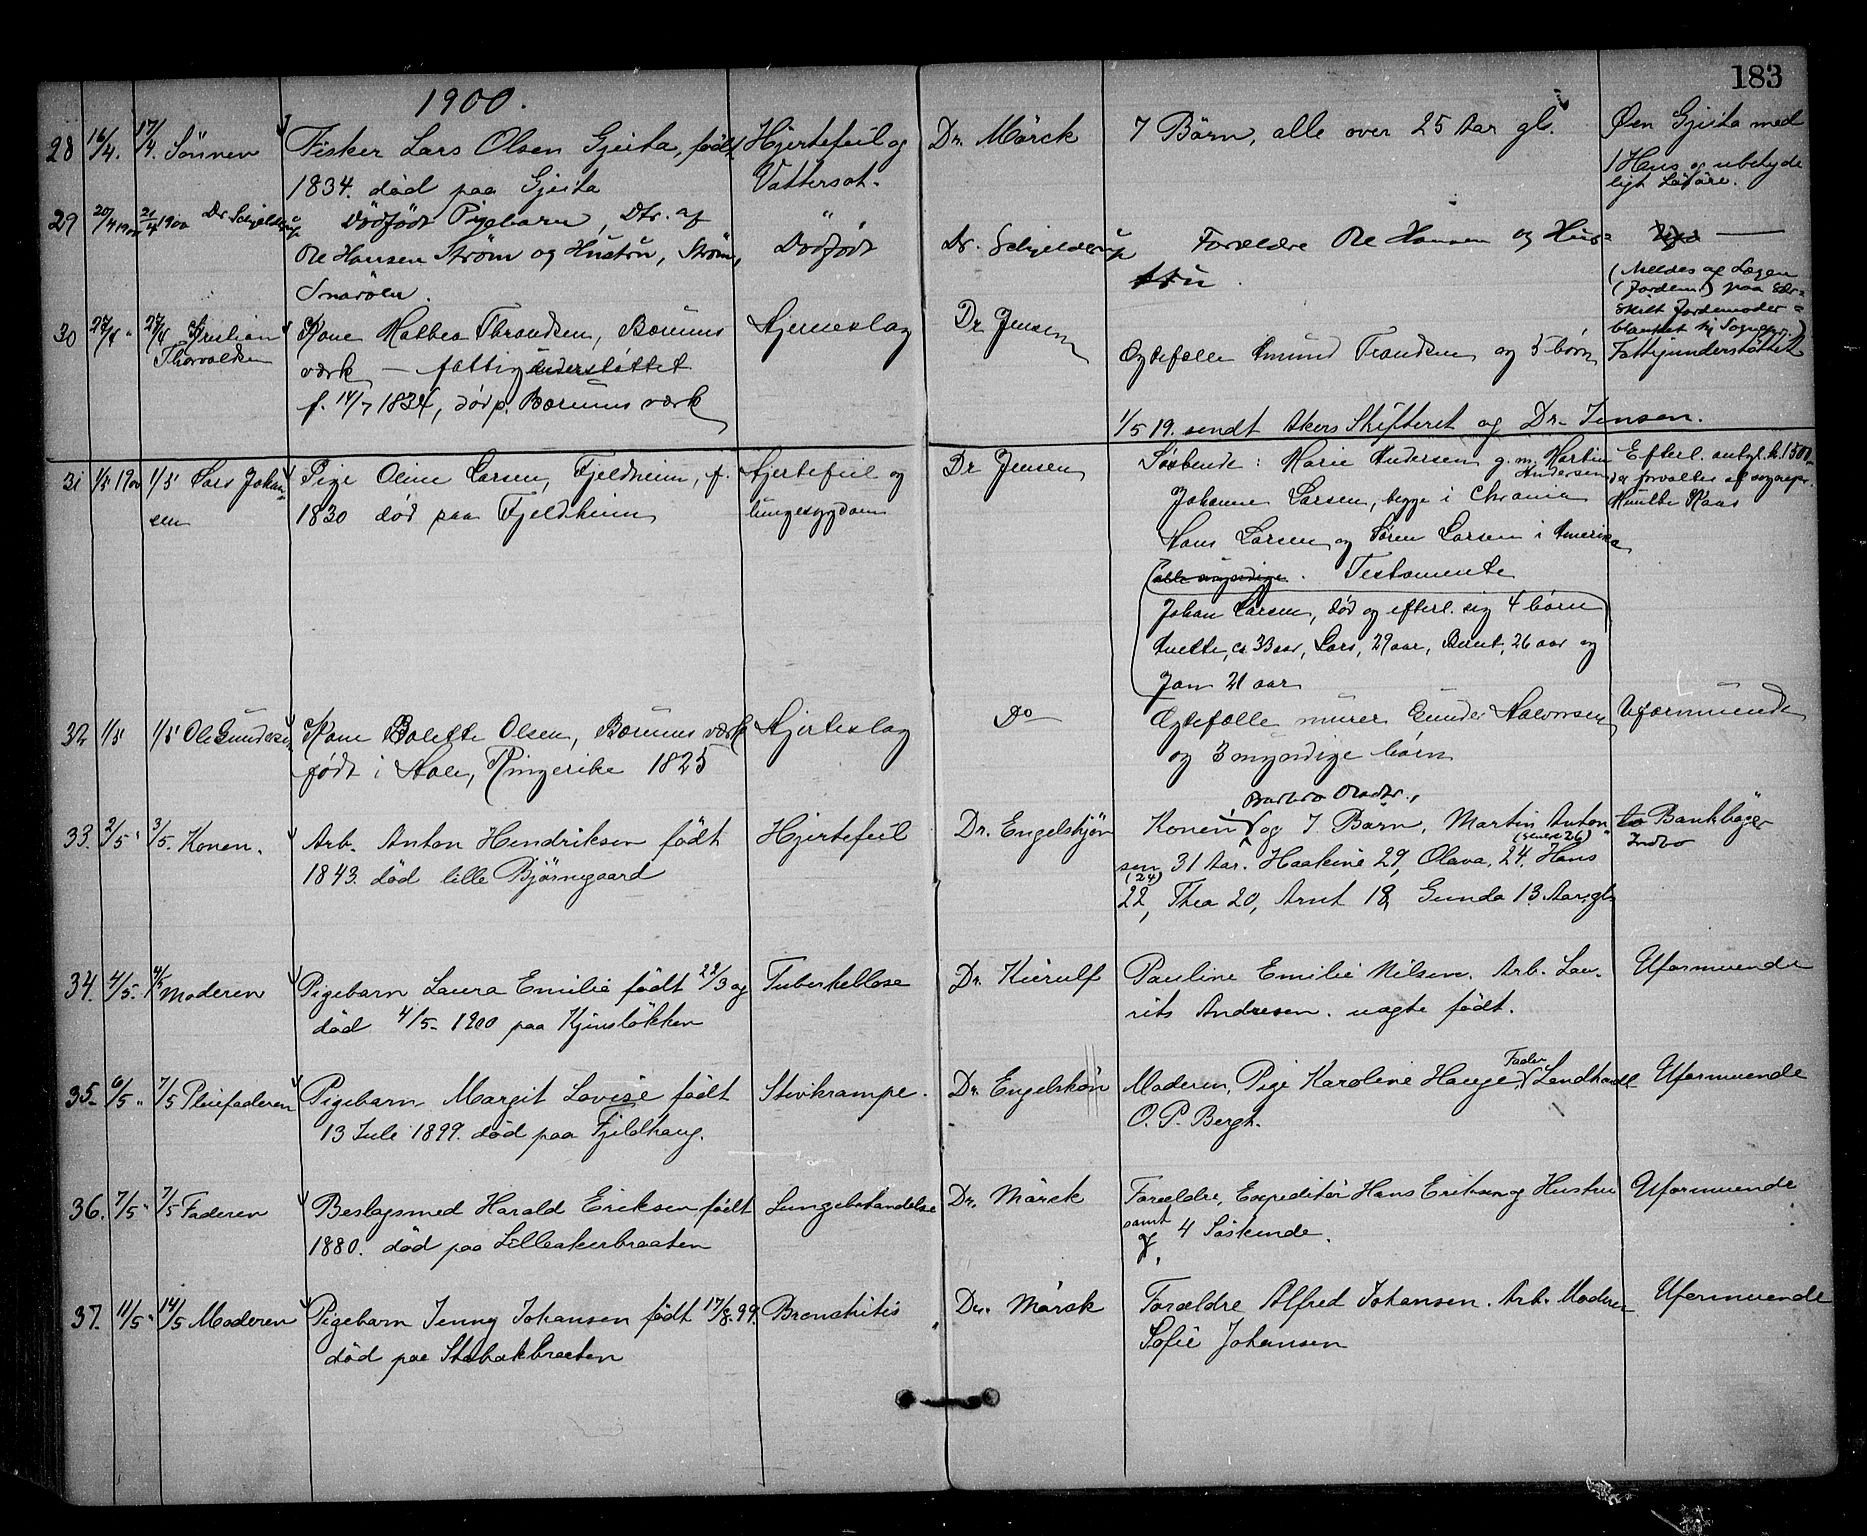 183
1900.
28 16/4. 17/4. Sönnen Fisker Lars Olsen Gjeita, født Hjertefeil og Dr. Mörck 7 Börn, alle over 25 Aar gl. Øen Gjeita med
1834. død paa Gjeita Vattersot. 1 Hus og ubetyde
ligt Løsøre.
29 20/4 1900 21/4 1900 Dr Schjelderup Dødfødt Pigebarn, Dtr. af Dødfødt Dr. Schjelderup Forældre Ole Hansen og Hus=
Ole Hansen Strøm og Hustru, Strøm, tru
Snarøen. (Meldes af Lægen
(Jordem.) paa sær=
skilt Jordemoder=
blanket til Sognepr.)
30 27/4 " 27/4 Kristian Kone Mathea Thrandsen, Bærums Hjerneslag Dr Jensen Ægtefælle Amund Trandsen og 5 börn Fattigunderstøttet
Thorvaldsen værk — fattigunderstøttet
f. 14/7 1834, død p. Bærums værk
1/5 19. sendt Akers Skifteret og Dr. Jensen.
31 1/5 1900 1/5 Lars Johan= Pige Oline Larsen, Fjeldheim, f. Hjertefeil og Dr Jensen Søskende: Marie Andersen g. m. Martin Efterl. antgl. k. 1500
sen 1830 død paa Fjeldheim lungesygdom Andersen der forvaltes af sogrepr.
Johanne Larsen, begge i Chrania Munthe Kaas
Hans Larsen og Søren Larsen i Amerika
(alle myndige. Testamente
Johan Larsen, død og efterl. sig 4 börn
Anette, ca 33 aar, Lars, 29 aar, Bernt, 26 aar og
Jan 21 aar
32 1/5 1/5 Ole Gundersen Kone Bolette Olsen, Bærums værk Hjerteslag Do Ægtefælle murer Gunder Halvorsen Uformuende
født i Hole, Ringerike 1825 og 3 myndige börn
33. 2/5 " 3/5. Konen. Arb. Anton Hendriksen født Hjertefeil Dr. Engelskjøn Konen Barbro Olsdtr., og 7. Barn, Martin Anton Bankbøger
1843. død lille Bjørnegaard sen 31 Aar. Haakine 29, Olava, 24. Hans Indbo
(24)
22, Thea 20, Arnt 18, Gunda 13 Aar gl.
34. 4/5. 4/5 Moderen Pigebarn Laura Emilie født 22/3 og Tuberkellose Dr. Kierulf Pauline Emilie Nilsen. Arb. Lau. Uformuende
død 4/5 - 1900 paa Kjinsløkken rits Andresen. uægte født.
35. 6/5 " 7/5 Pleiefaderen Pigebarn Margit Lovise født Stivkrampe. Dr. Engelskøn Moderen, Pige Karoline Hauge Fader Landhandl Uformuende
13 Juli 1899. død paa Fjeldhaug. O. P. Bergh.
36. 7/5 " 7/5 Faderen Beslagsmed Harald Eriksen født Lungebetændelse Dr. Mörck Forældre, Expeditør Hans Eriksen og Hustru Uformuende
1880. død paa Lilleakerbraaten samt 4 Søskende.
37. 11/5 " 14/5 Moderen Pigebarn Jenny Johansen født 17/8. 99. Bronchitis Dr. Mörck Forældre Alfred Johansen. Arb. Moderen Uformuende
død paa Stabækbraaten Sofie Johansen